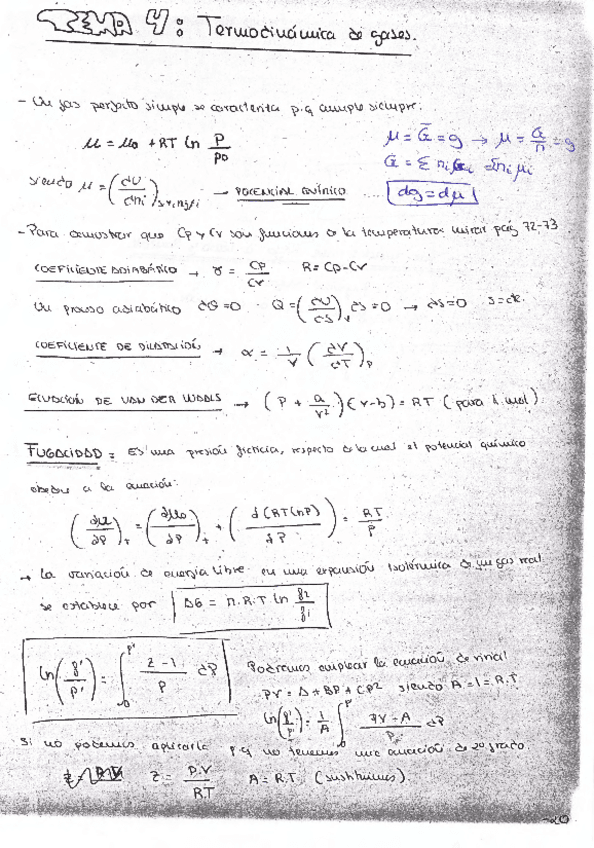 TEMA 4: Termodinámica de gases.
- Un gas perfecto simple se caracteriza p.q cumple siempre:
μ = μ0 + RT ln P/P0
μ = Ḡ = g → μ = G/n = g
G = Σ ni Ḡi = Σ ni μi
siendo μ = (dU/dni)s,v,nj≠i → POTENCIAL QUÍMICO .... dg = dμ
- Para demostrar que Cp y Cv son funciones de la temperatura mirar pág 72-73
COEFICIENTE ADIABÁTICO → γ = Cp/Cv R = Cp - Cv
Un proceso adiabático dQ = 0 Q = (dU/dS)v dS = 0 → dS = 0 S = cte.
COEFICIENTE DE DILATACIÓN → α = 1/V (dV/dT)p
ECUACIÓN DE VAN DER WAALS → (P + a/v²)(v-b) = RT (para 1 mol).
FUGACIDAD = Es una presión ficticia, respecto de la cual el potencial químico
obedece a la ecuación:
(dμ/dP)T = (dμ0/dP)T + (d(RT lnP)/dP) = RT/P
→ La variación de energía libre en una expansión isotérmica de un gas real
se establece por ΔG = n.R.T ln f2/f1
ln(f'/P') = ∫0^P' z-1/P dP
Podremos emplear la ecuación de virial
PV = A + BP + CP² siendo A = 1 = R.T
ln(f'/P') = 1/A ∫0^P' PV - A/P dP
Si no podemos aplicarla p.q no tenemos una ecuación de 2º grado
z = P.V/R.T A = R.T (sustituimos).